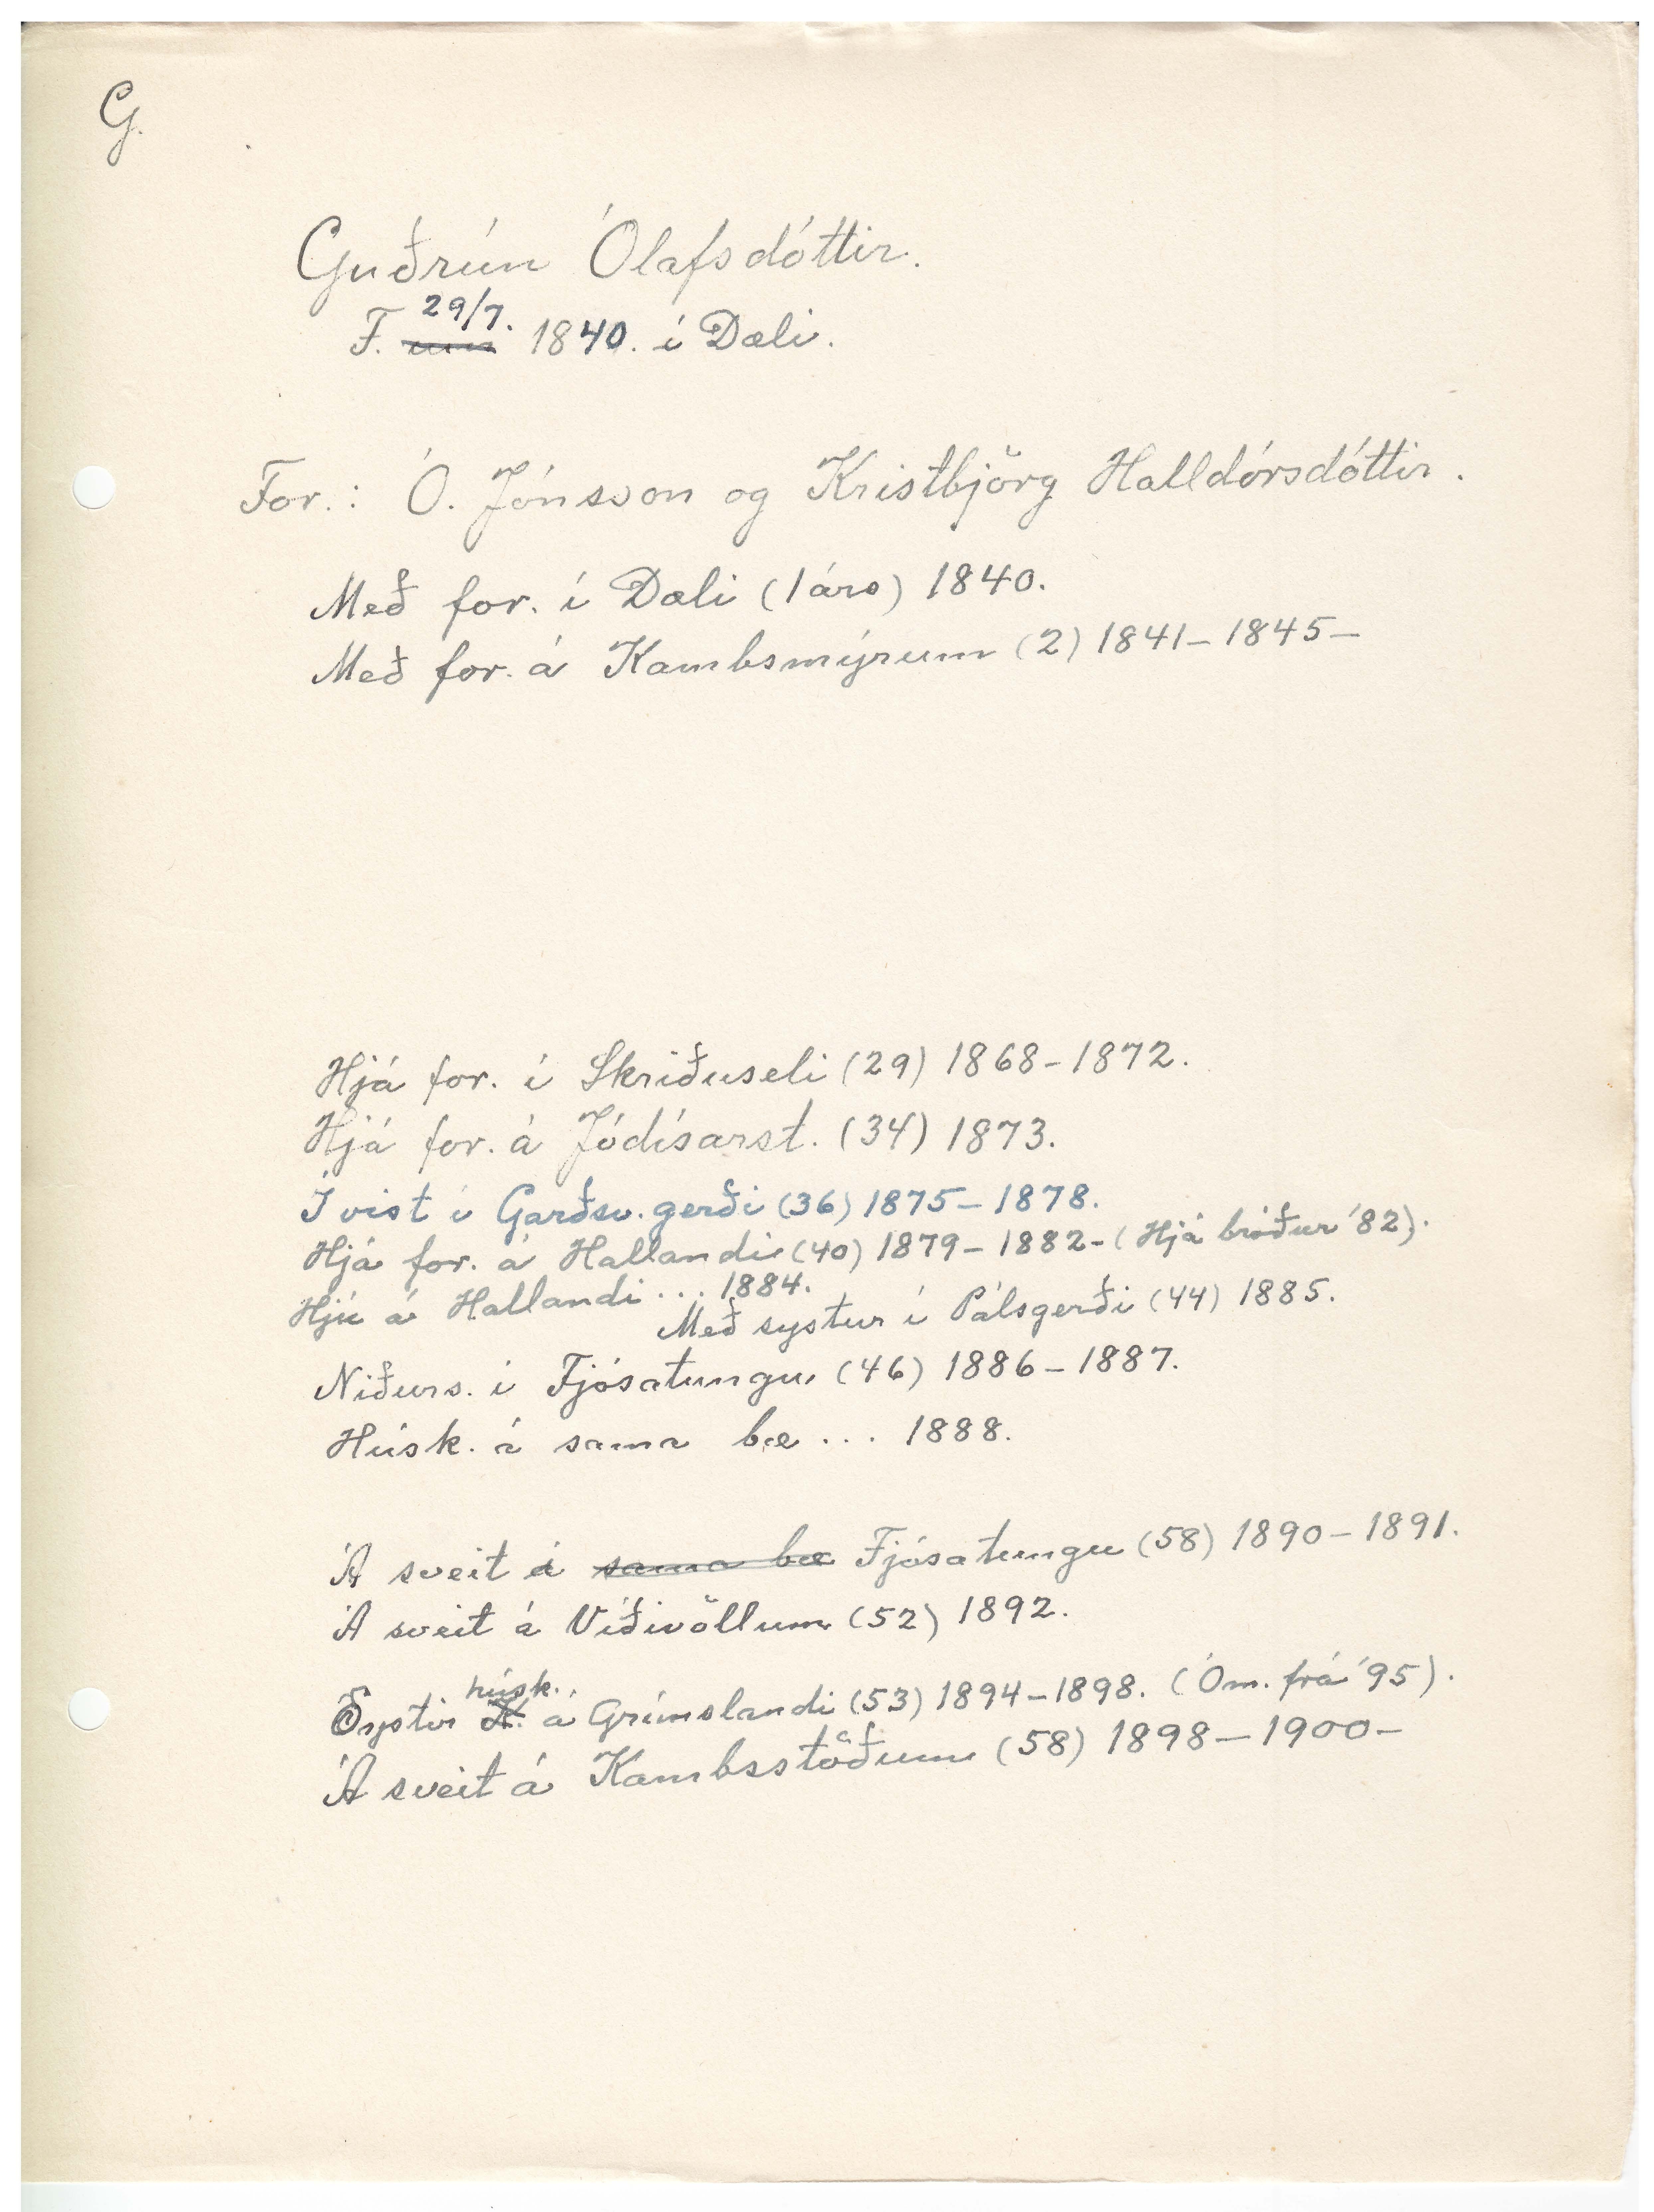 G.
Guðrún Ólafsdóttir.
29/7.
F. 1840. í Dæli.
For.: Ó. Jónsson og Kristbjörg Halldórsdóttir.
Með for. í Dæli (1 árs) 1840.
Með for. á Kambsmýrum (2) 1841-1845-
Hjá for. í Skriðuseli (29) 1868-1872.
Hjá for. á Jódísarst. (34) 1873.
Í vist í Garðsv.gerði (36) 1875-1878.
Hjá for. á Hallandi (40) 1879-1882-(Hjá bróður '82).
Hjú á Hallandi ... 1884.
Með systur í Pálsgerði (44) 1885.
Niðurs. í Fjósatungu (46) 1886-1887.
Húsk. á sama bæ ... 1888.
Á sveit í sama bæ Fjósatungu (58) 1890-1891.
Á sveit á Víðivöllum (52) 1892.
húsk.
Systir á Grímslandi (53) 1894-1898. (Óm. frá '95).
Á sveit á Kambsstöðum (58) 1898-1900-